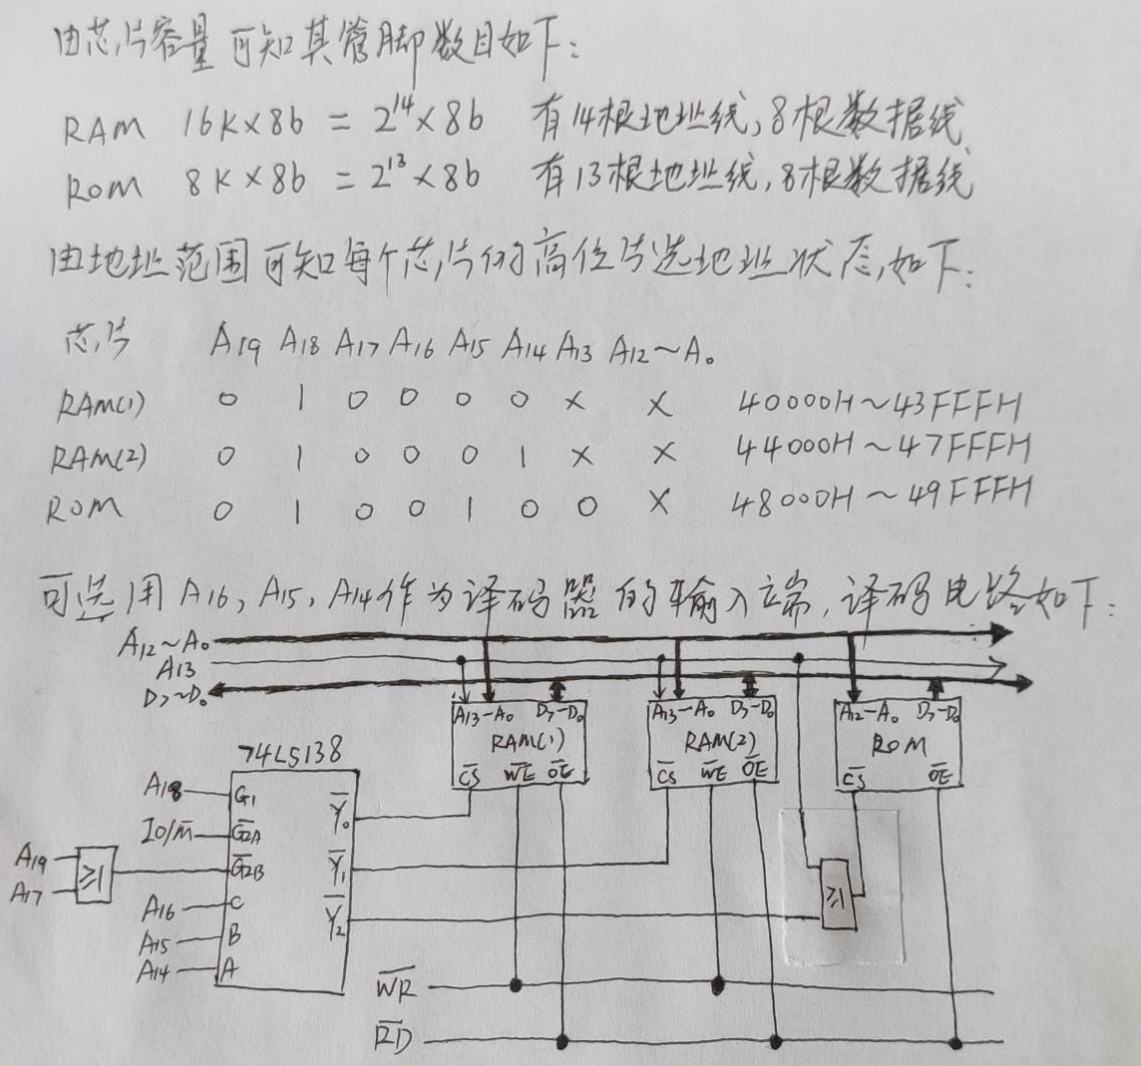 由芯片容量可知其管脚数目如下:
RAM 16K×8b = 2^14×8b 有14根地址线,8根数据线
ROM 8K×8b = 2^13×8b 有13根地址线,8根数据线
由地址范围可知每个芯片的高位片选地址状态,如下:
芯片 A19 A18 A17 A16 A15 A14 A13 A12~A0
RAM(1) 0 1 0 0 0 0 × × 40000H~43FFFH
RAM(2) 0 1 0 0 0 1 × × 44000H~47FFFH
ROM 0 1 0 0 1 0 0 × 48000H~49FFFH
可选用A16,A15,A14作为译码器的输入端,译码电路如下:
A12~A0
A13
D7~D0
A13-A0 D7-D0
RAM(1)
C̅S̅ W̅E̅ O̅E̅
A13-A0 D7-D0
RAM(2)
C̅S̅ W̅E̅ O̅E̅
A12-A0 D7-D0
ROM
C̅S̅ O̅E̅
74LS138
A18 G1 Y̅0
IO/M̅ G̅2A
A19
A17
≥1
G̅2B Y̅1
A16 C Y̅2
A15 B
A14 A
≥1
W̅R̅
R̅D̅